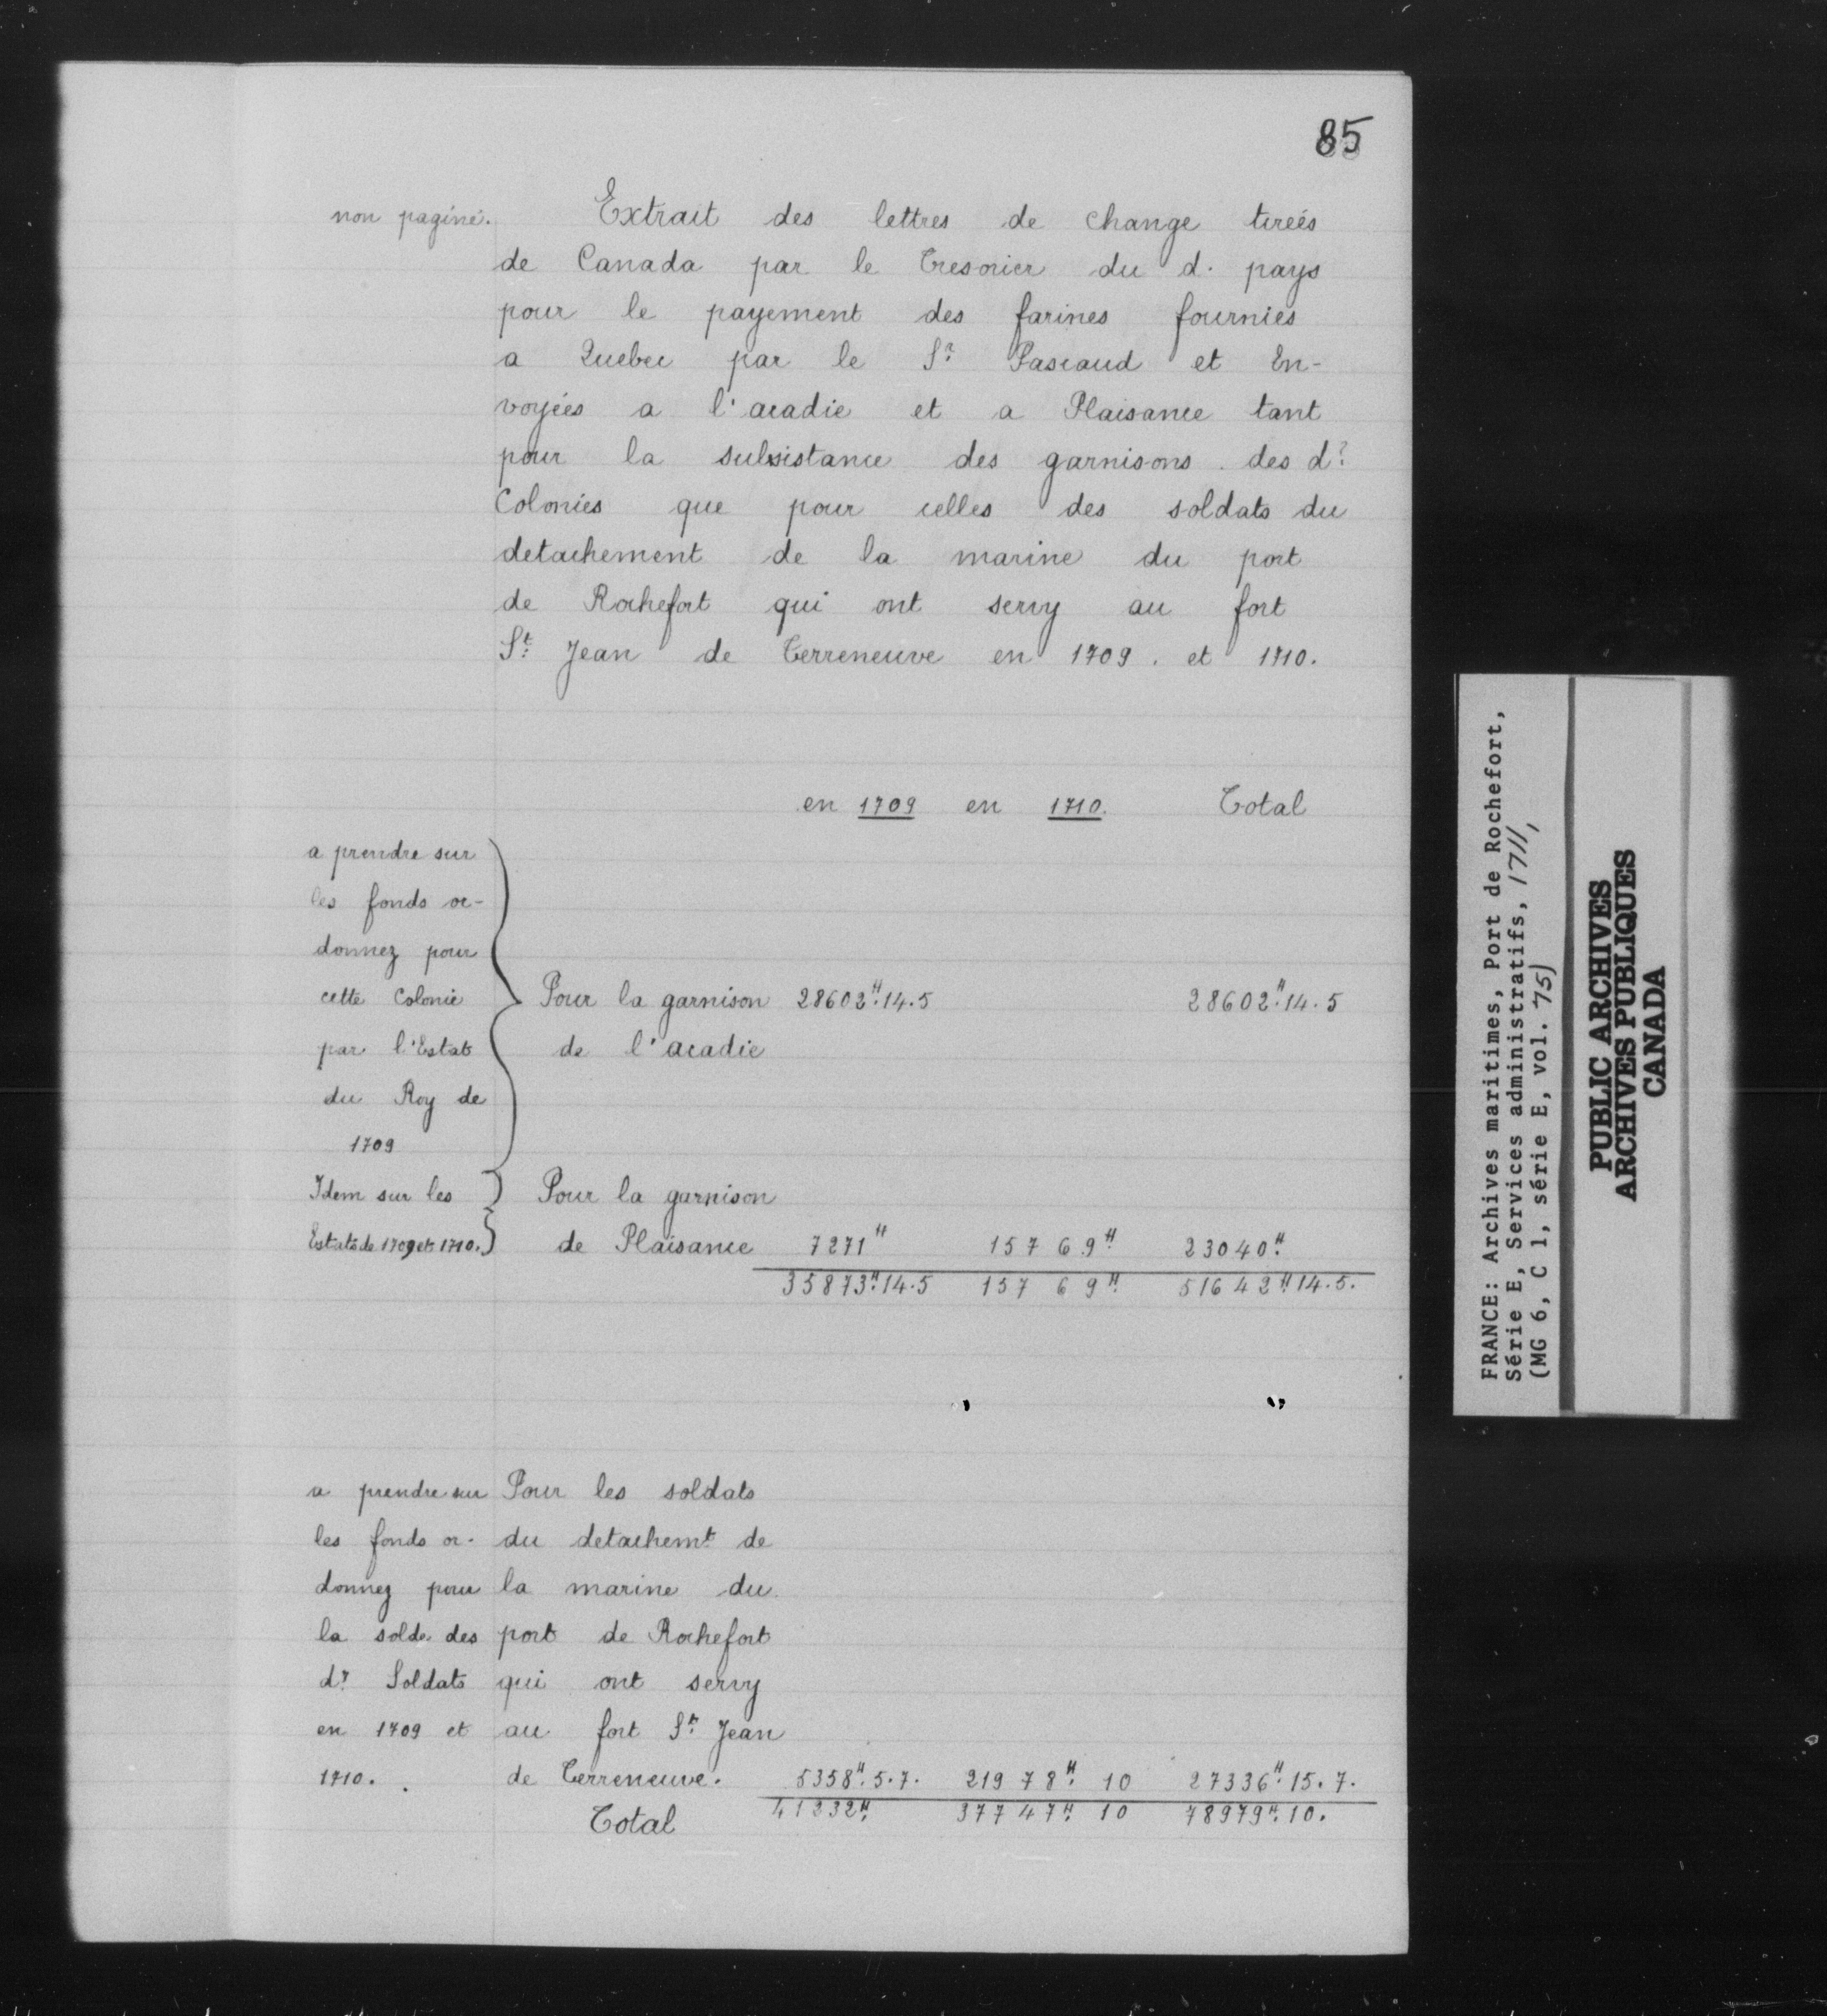 85
non paginé.
Extrait des lettres de change tireés
de Canada par le Tresorier du d. pays
pour le payement des farines fournies
a Quebec par le Sr. Pascaud et En-
voyées a l'acadie et a Plaisance tant
pour la subsistance des garnisons. des d?
Colonies que pour celles des soldats du
detachement de la marine du port
de Rochefort qui ont servy au fort
St. Jean de Terreneuve en 1709. et 1710.
en 1709 en 1710. Total
a prendre sur
les fonds or-
donnez pour
cette Colonie Pour la garnison 28602#.14.5 28602#.14.5
par l'Estat de l'acadie
du Roy de
1709
Idem sur les Pour la garnison
Estats de 1709 et 1710. de Plaisance 7271# 15769# 23040#
35873#.14.5 15769# 51642#.14.5.
a prendre sur Pour les soldats
les fonds or- du detachemt. de
donnez pour la marine du
la solde des port de Rochefort
ds. Soldats qui ont servy
en 1709 et au fort St. Jean
1710. de Terreneuve. 5358#.5.7. 21978#. 10 27336#.15.7.
Total 41232#. 37747#. 10 78979#.10.
FRANCE: Archives maritimes, Port de Rochefort,
Série E, Services administratifs, 1711,
(MG 6, C 1, série E, vol. 75)
PUBLIC ARCHIVES
ARCHIVES PUBLIQUES
CANADA